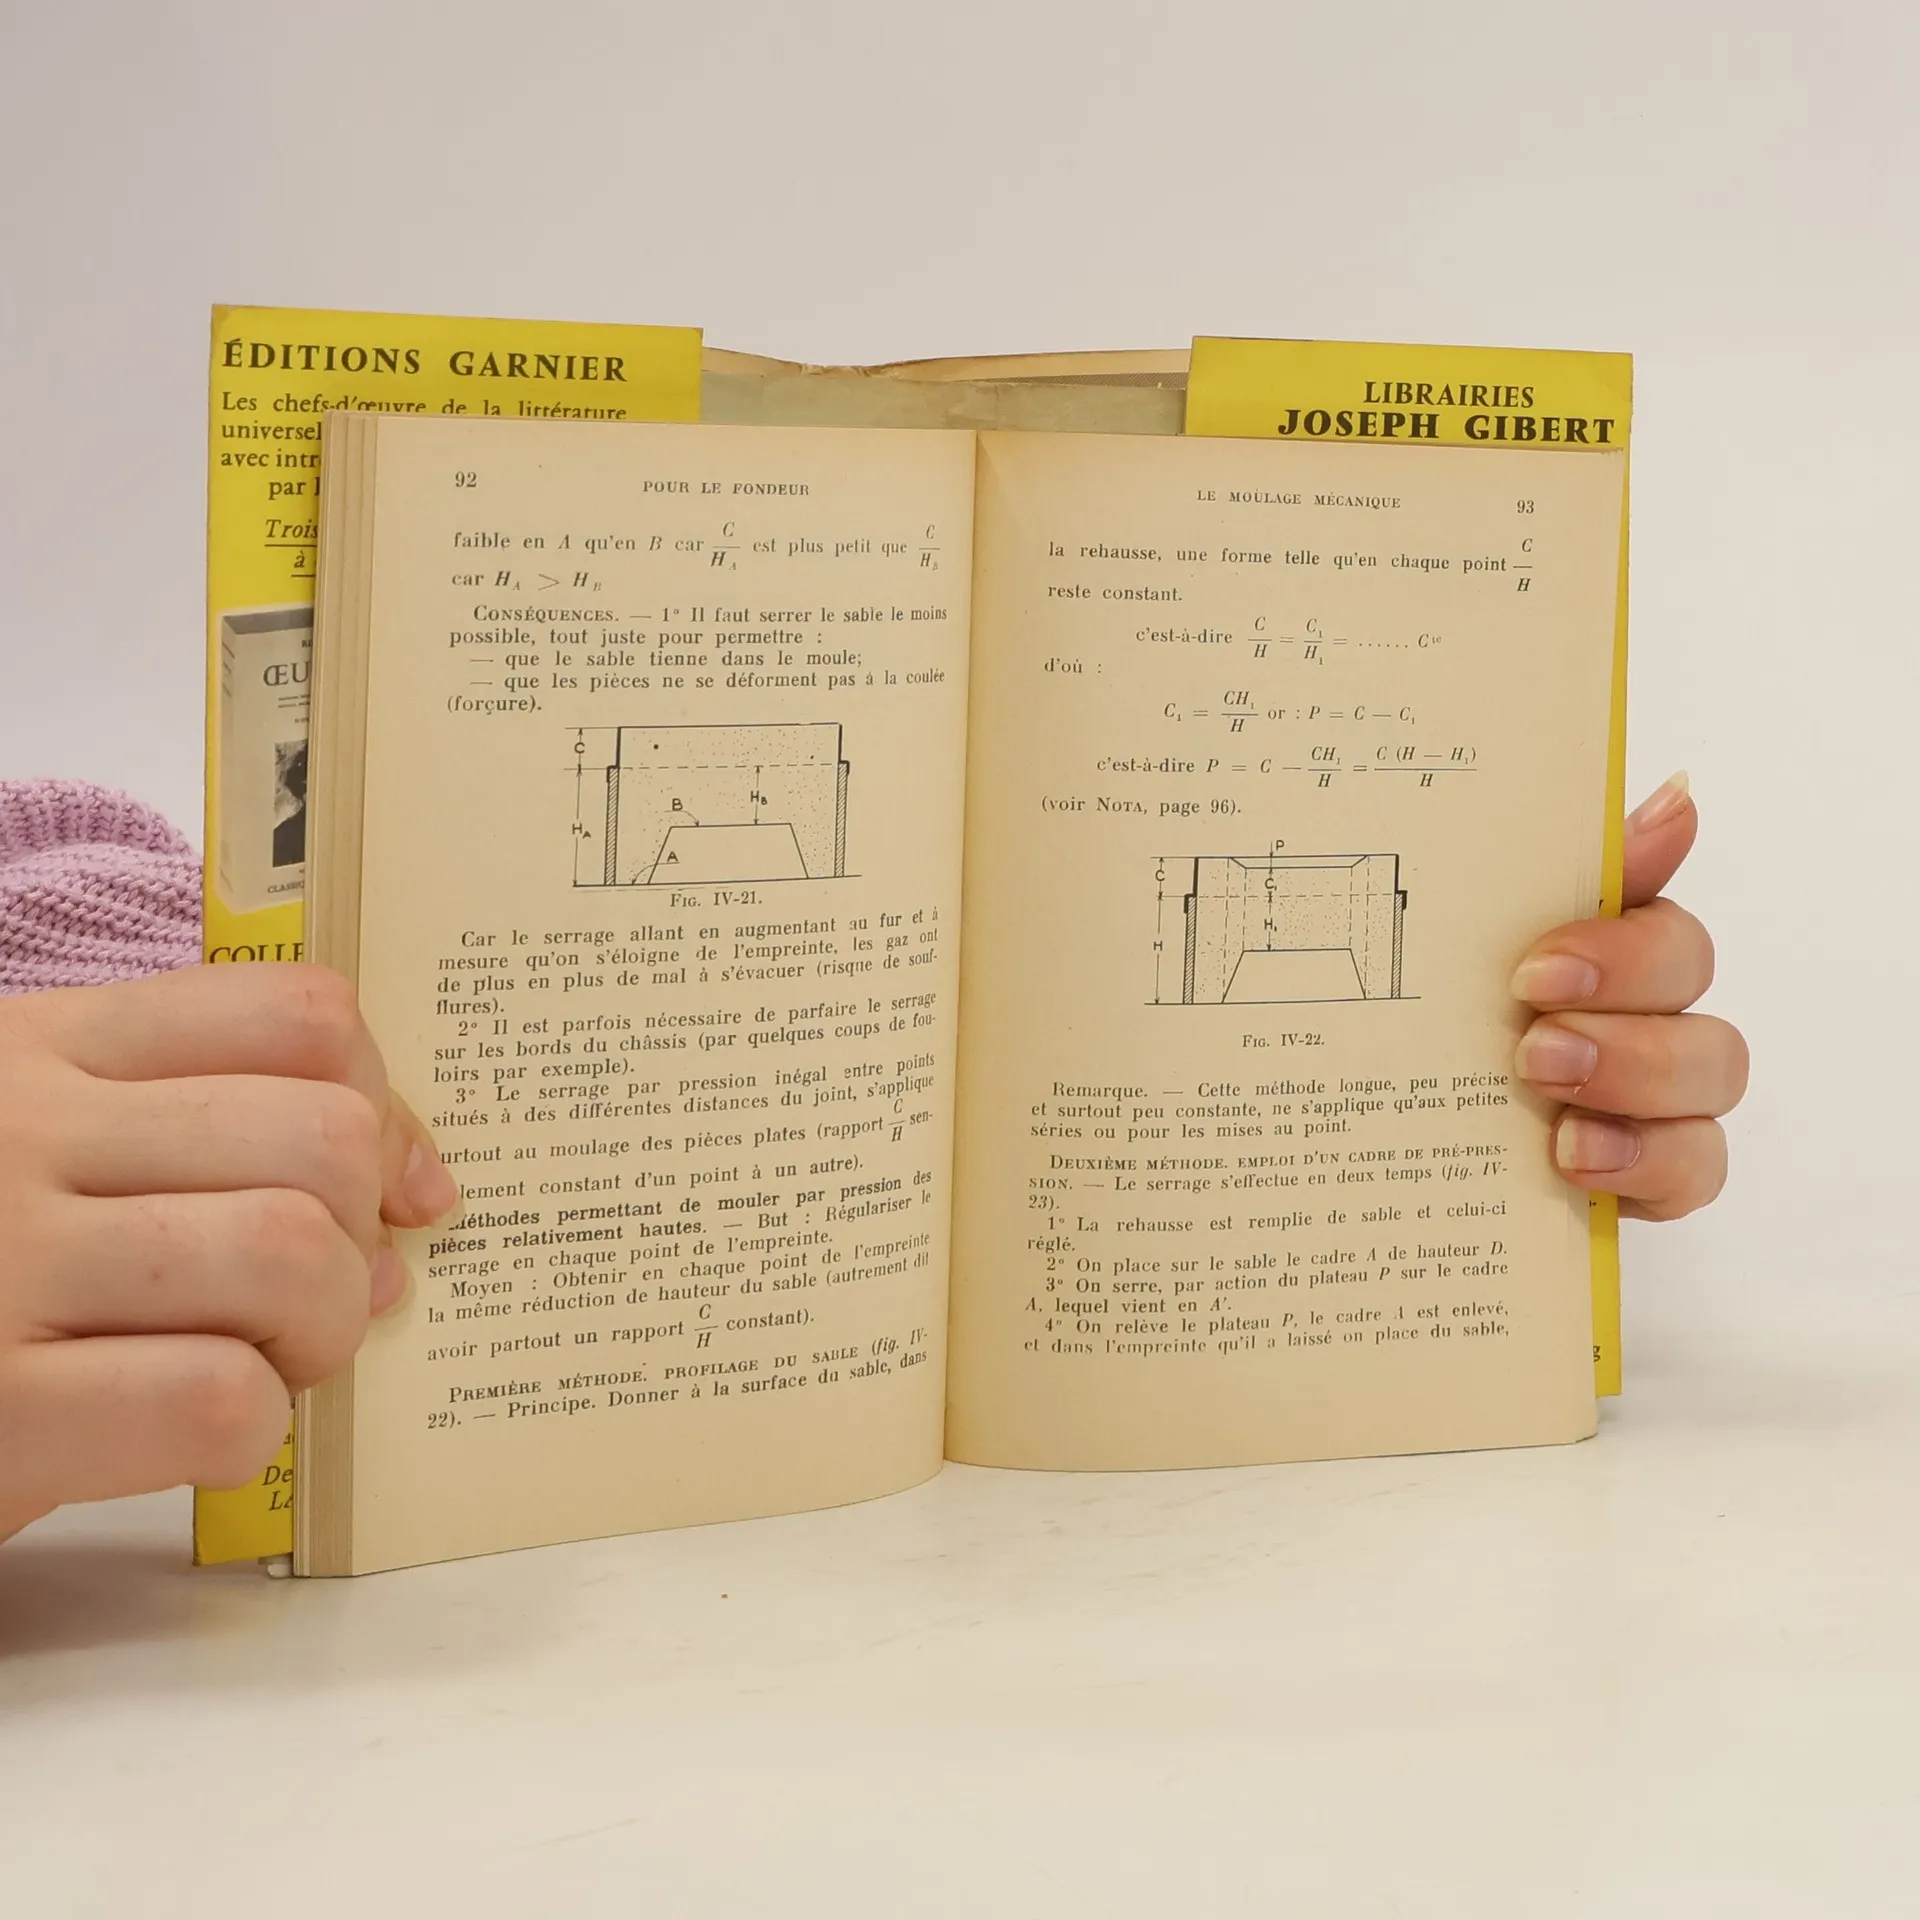 ÉDITIONS GARNIER
Les chefs-d'œuvre de la littérature
universel
avec intr
par
Trois
à
ŒU
COLLE
De
LIBRAIRIES
JOSEPH GIBERT
92 POUR LE FONDEUR
faible en A qu'en B car C/H_A est plus petit que C/H_B
car H_A > H_B
CONSÉQUENCES. — 1° Il faut serrer le sable le moins
possible, tout juste pour permettre :
— que le sable tienne dans le moule;
— que les pièces ne se déforment pas à la coulée
(forçure).
C
H_A
B
H_B
A
FIG. IV-21.
Car le serrage allant en augmentant au fur et à
mesure qu'on s'éloigne de l'empreinte, les gaz ont
de plus en plus de mal à s'évacuer (risque de souf-
flures).
2° Il est parfois nécessaire de parfaire le serrage
sur les bords du châssis (par quelques coups de fou-
loirs par exemple).
3° Le serrage par pression inégal entre points
situés à des différentes distances du joint, s'applique
urtout au moulage des pièces plates (rapport C/H sen-
lement constant d'un point à un autre).
éthodes permettant de mouler par pression des
pièces relativement hautes. — But : Régulariser le
serrage en chaque point de l'empreinte.
Moyen : Obtenir en chaque point de l'empreinte
la même réduction de hauteur du sable (autrement dit
avoir partout un rapport C/H constant).
PREMIÈRE MÉTHODE. PROFILAGE DU SABLE (fig. IV-
22). — Principe. Donner à la surface du sable, dans
LE MOULAGE MÉCANIQUE 93
la rehausse, une forme telle qu'en chaque point C/H
reste constant.
c'est-à-dire C/H = C₁/H₁ = ...... Cte
d'où :
C₁ = CH₁/H or : P = C — C₁
c'est-à-dire P = C — CH₁/H = C (H — H₁)/H
(voir NOTA, page 96).
P
C
C₁
H
H₁
FIG. IV-22.
Remarque. — Cette méthode longue, peu précise
et surtout peu constante, ne s'applique qu'aux petites
séries ou pour les mises au point.
DEUXIÈME MÉTHODE. EMPLOI D'UN CADRE DE PRÉ-PRES-
SION. — Le serrage s'effectue en deux temps (fig. IV-
23).
1° La rehausse est remplie de sable et celui-ci
réglé.
2° On place sur le sable le cadre A de hauteur D.
3° On serre, par action du plateau P sur le cadre
A, lequel vient en A'.
4° On relève le plateau P, le cadre A est enlevé,
et dans l'empreinte qu'il a laissé on place du sable,